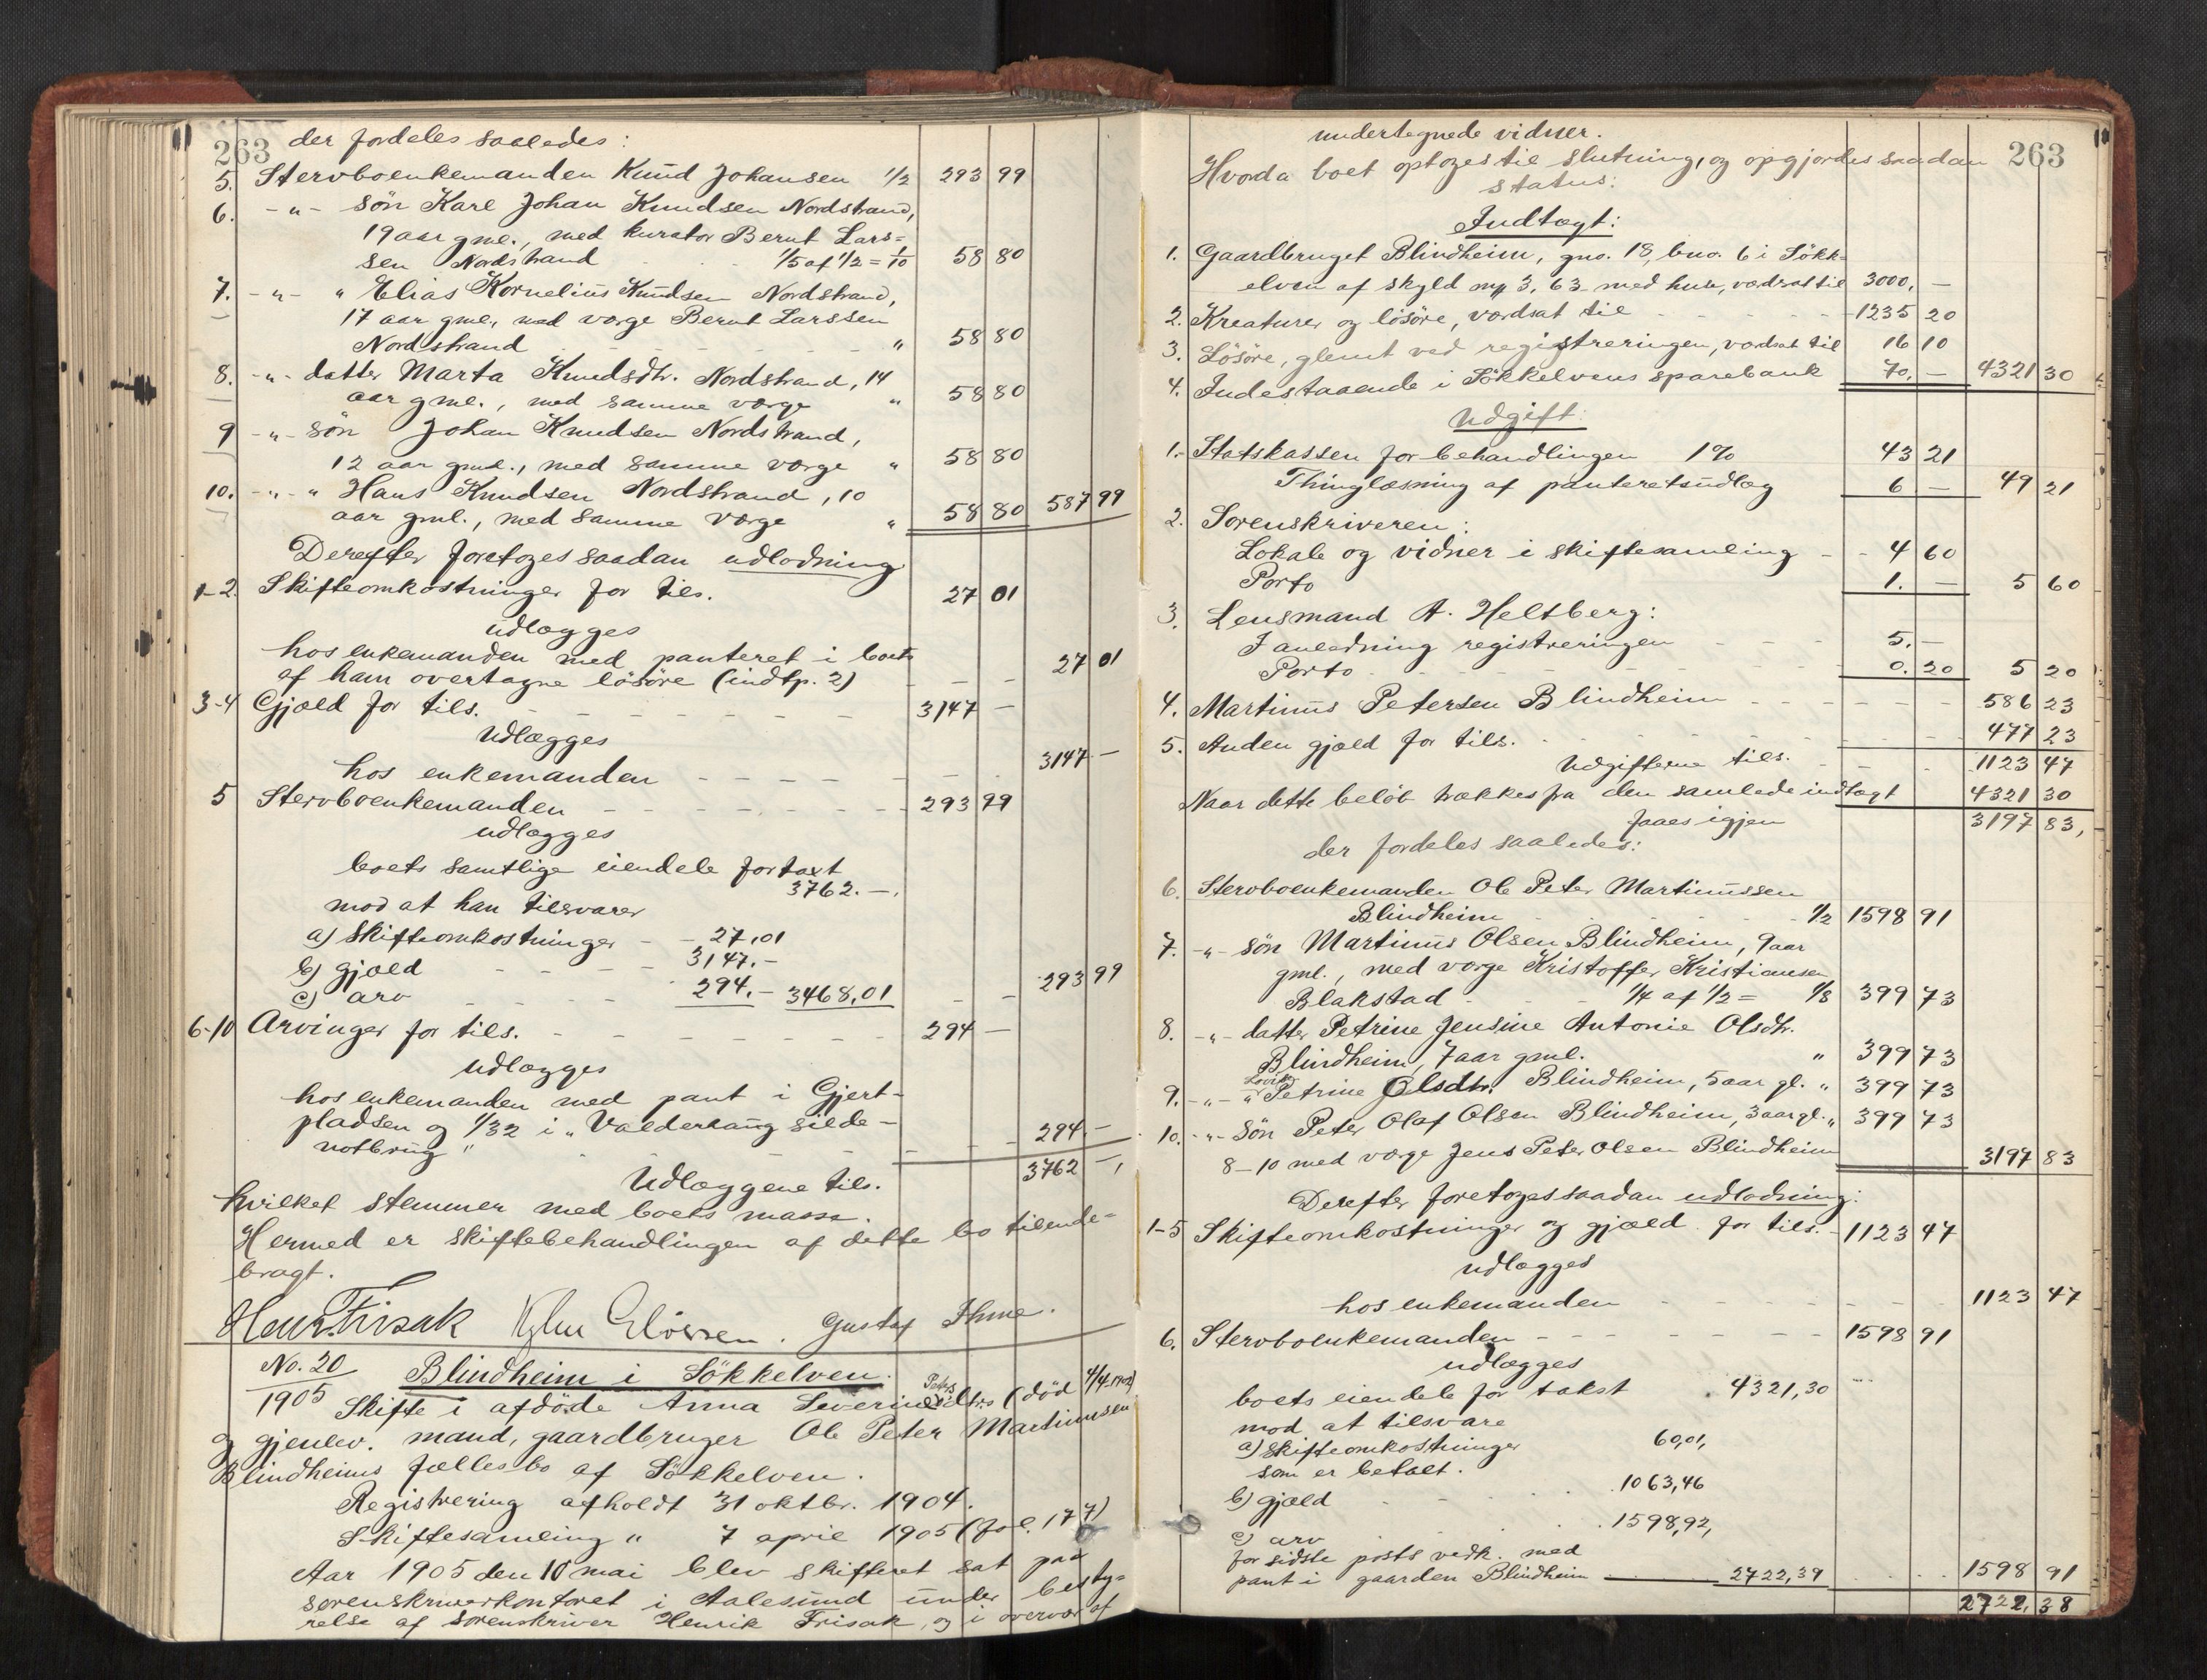 263 der fordeles saaledes:
5. Stervboenkemanden Knud Johansen 1/2 293 99
6. -"- sön Karl Johan Knudsen Nordstrand,
19 aar gml., med kurator Bernt Lars=
sen Nordstrand 1/5 af 1/2 = 1/10 58 80
7. -"- " Elias Kornelius Knudsen Nordstrand,
17 aar gml., med værge Bernt Larssen
Nordstrand " 58 80
8. -"- datter Marta Knudsdtr. Nordstrand, 14
aar gml., med samme værge " 58 80
9 -"- sön Johan Knudsen Nordstrand,
12 aar gml., med samme værge " 58 80
10. -"- " Hans Knudsen Nordstrand, 10
aar gml., med samme værge " 58 80 587 99
Derefter foretoges saadan udlodning
1-2. Skifteomkostninger for tils. 27 01
udlægges
hos enkemanden med panteret i boets
af ham overtagne lösöre (indtp. 2) 27 01
3-4 Gjæld for tils. 3147 —
Udlægges
hos enkemanden 3147 —
5 Stervboenkemanden 293 99
udlægges
boets samtlige eiendele for taxt
3762. —
mod at han tilsvarer
a) Skifteomkostninger 27,01
b) gjæld 3147.-
c) arv 294.- 3468,01 293 99
6-10 Arvinger for tils. 294 —
udlægges
hos enkemanden med pant i Gjert-
pladsen og 1/32 i "Valderhaug silde-
notbrug" 294.-
Udlæggene tils. 3762 —,
hvilket stemmer med boets masse.
Hermed er skiftebehandlingen af dette bo tilende=
bragt.
Henr. Frisak Gustaf Ihme.
No. 20
1905 Blindheim i Sökkelven.
Skifte i afdöde Anna Severine Petersdtrs (död 4/4-1902)
og gjenlev. mand, gaardbruger Ole Peter Martinussen
Blindheims fællesbo af Sökkelven.
Registrering afholdt 31 oktbr. 1904.
Skiftesamling " 7 april 1905 (fol. 177)
Aar 1905 den 10 mai blev skifteret sat paa
sorenskriverkontoret i Aalesund under besty=
relse af sorenskriver Henrik Frisak, og i overvær af
undertegnede vidner.
Hvorda boet optoges til slutning, og opgjordes saadan 263
status:
Indtægt:
1. Gaardbruget Blindheim, gno. 18, bno. 6 i Sökk-
elven af skyld mk 3,63 med huse, værdsat til 3000, —
2. Kreaturer og lösöre, værdsat til 1235 20
3. Lösöre, glemt ved registreringen, værdsat til 16 10
4. Indestaaende i Sökkelvens sparebank 70. — 4321 30
Udgift:
1. Statskassen for behandlingen 1% 43 21
Thinglæsning af panteretsudlæg 6 — 49 21
2. Sorenskriveren:
Lokale og vidner i skiftesamling 4 60
Porto 1. — 5 60
3. Lensmand A. Heltberg:
I anledning registreringen 5. —
Porto 0. 20 5 20
4. Martinus Petersen Blindheim 586 23
5. Anden gjæld for tils. 477 23
Udgifterne tils. 1123 47
Naar dette belöb trækkes fra den samlede indtægt 4321 30
faaes igjen 3197 83,
der fordeles saaledes:
6. Stervboenkemanden Ole Peter Martinussen
Blindheim 1/2 1598 91
7. -"- sön Martinus Olsen Blindheim, 9 aar
gml., med værge Kristoffer Kristiansen
Blakstad 1/4 af 1/2 = 1/8 399 73
8. -"- datter Petrine Jensine Antonie Olsdtr.
Blindheim, 7 aar gml. " 399 73
9. -"- " Petrine Olsdtr. Blindheim, 5 aar gl. " 399 73
10. -"- Sön Peter Olaf Olsen Blindheim, 3 aar gl. " 399 73
8-10 med værge Jens Peter Olsen Blindheim 3197 83
Derefter foretoges saadan udlodning:
1-5 Skifteomkostninger og gjæld for tils. 1123 47
udlægges
hos enkemanden 1123 47
6. Stervboenkemanden 1598 91
udlægges
boets eiendele for takst 4321,30
mod at tilsvare
a) skifteomkostninger 60,01,
som er betalt.
b) gjæld 1063,46
c) arv 1598,92,
for sidste posts vedk. med
pant i gaarden Blindheim 2722,39 1598 91
2722, 38